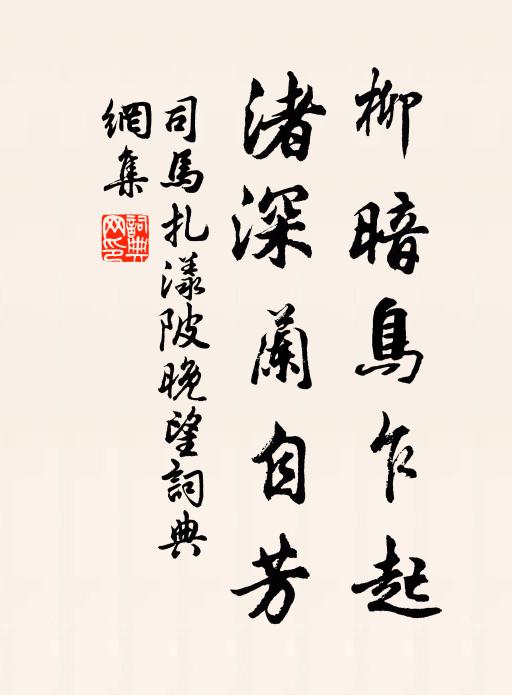 柳暗鳥乍起
渚深蘭自芳
司馬扎漾陂晚望詞典
網集
詞典
网印